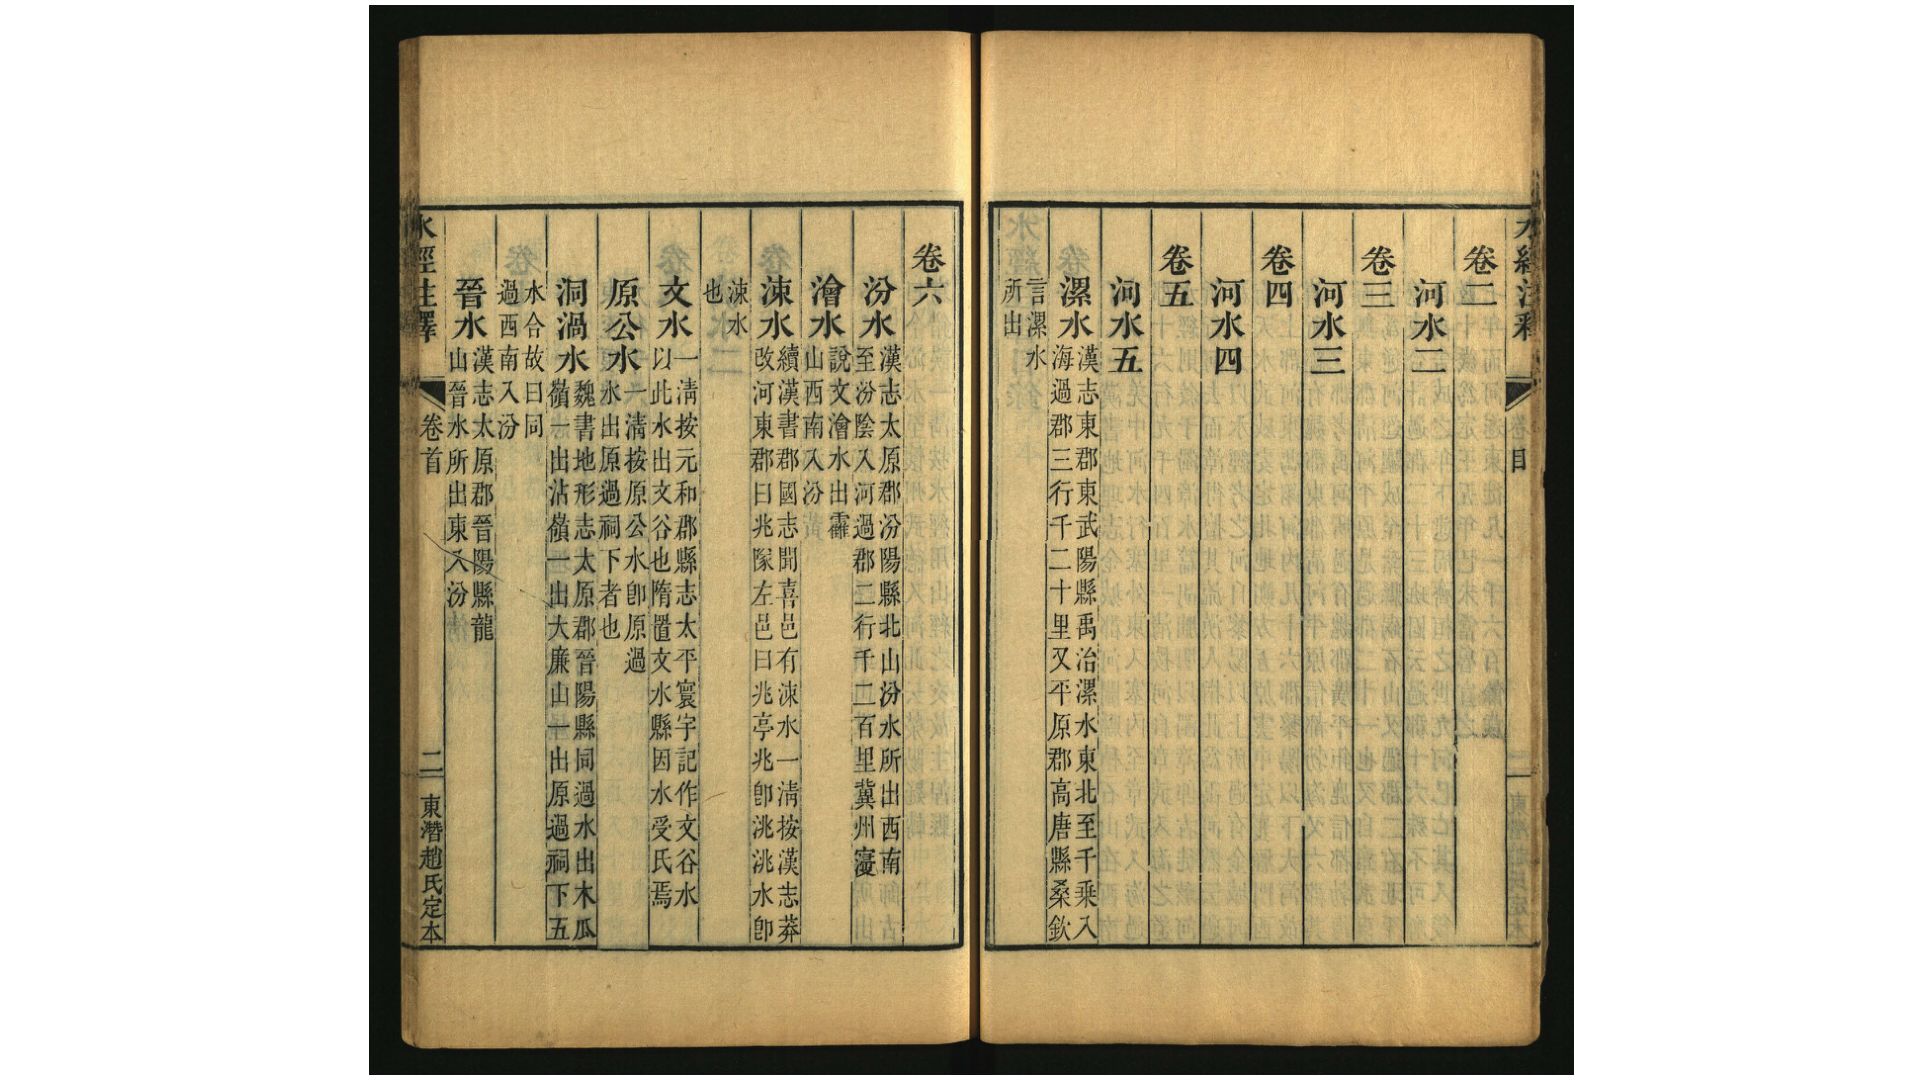 水經注釋
卷目
卷二
河水二
卷三
河水三
卷四
河水四
卷五
河水五
漯水
漢志東郡東武陽縣禹治漯水東北至千乗入
海過郡三行千二十里又平原郡高唐縣桑欽
言漯水
所出
卷六
汾水
漢志太原郡汾陽縣北山汾水所出西南
至汾陰入河過郡二行千二百里冀州寖
澮水
說文澮水出靃
山西南入汾
涑水
續漢書郡國志聞喜邑有涑水一清按漢志莽
改河東郡曰兆隊左邑曰兆亭兆卽洮洮水卽
涑水
也
文水
一清按元和郡縣志太平寰宇記作文谷水
以此水出文谷也隋置文水縣因水受氏焉
原公水
一清按原公水卽原過
水出原過祠下者也
洞渦水
魏書地形志太原郡晉陽縣同過水出木瓜
嶺一出沾嶺一出大廉山一出原過祠下五
水合故曰同
過西南入汾
晉水
漢志太原郡晉陽縣龍
山晉水所出東入汾
水經注釋
卷首
二
東潛趙氏定本